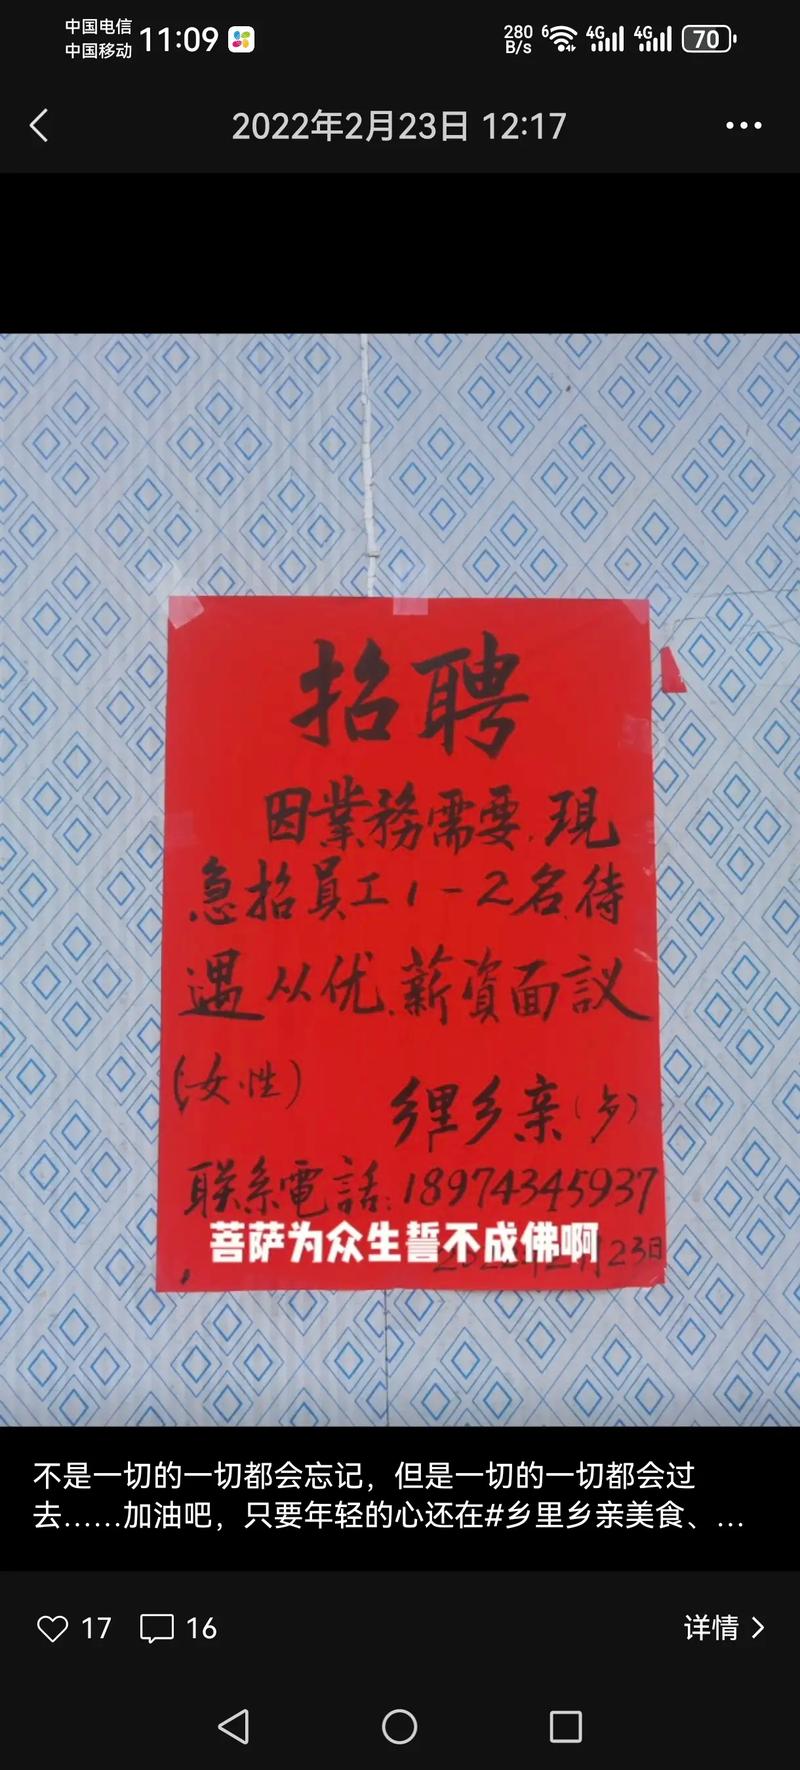 中国电信
中国移动
11:09
280 B/s
6
4G
4G
70
2022年2月23日 12:17
招聘
因業務需要.現
急招員工1-2名.待
遇从优.薪資面议
(女性)
乡里乡亲(乡)
联系電話:18974345937
23日
菩萨为众生誓不成佛啊
不是一切的一切都会忘记，但是一切的一切都会过
去……加油吧，只要年轻的心还在#乡里乡亲美食、...
17
16
详情